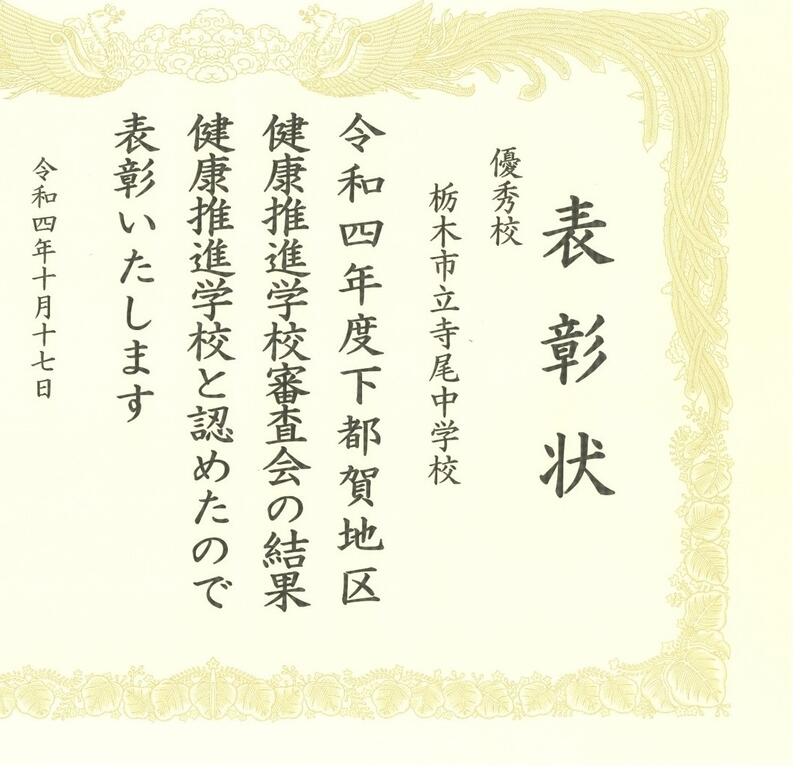 表彰状
優秀校
栃木市立寺尾中学校
令和四年度下都賀地区
健康推進学校審査会の結果
健康推進学校と認めたので
表彰いたします
令和四年十月十七日